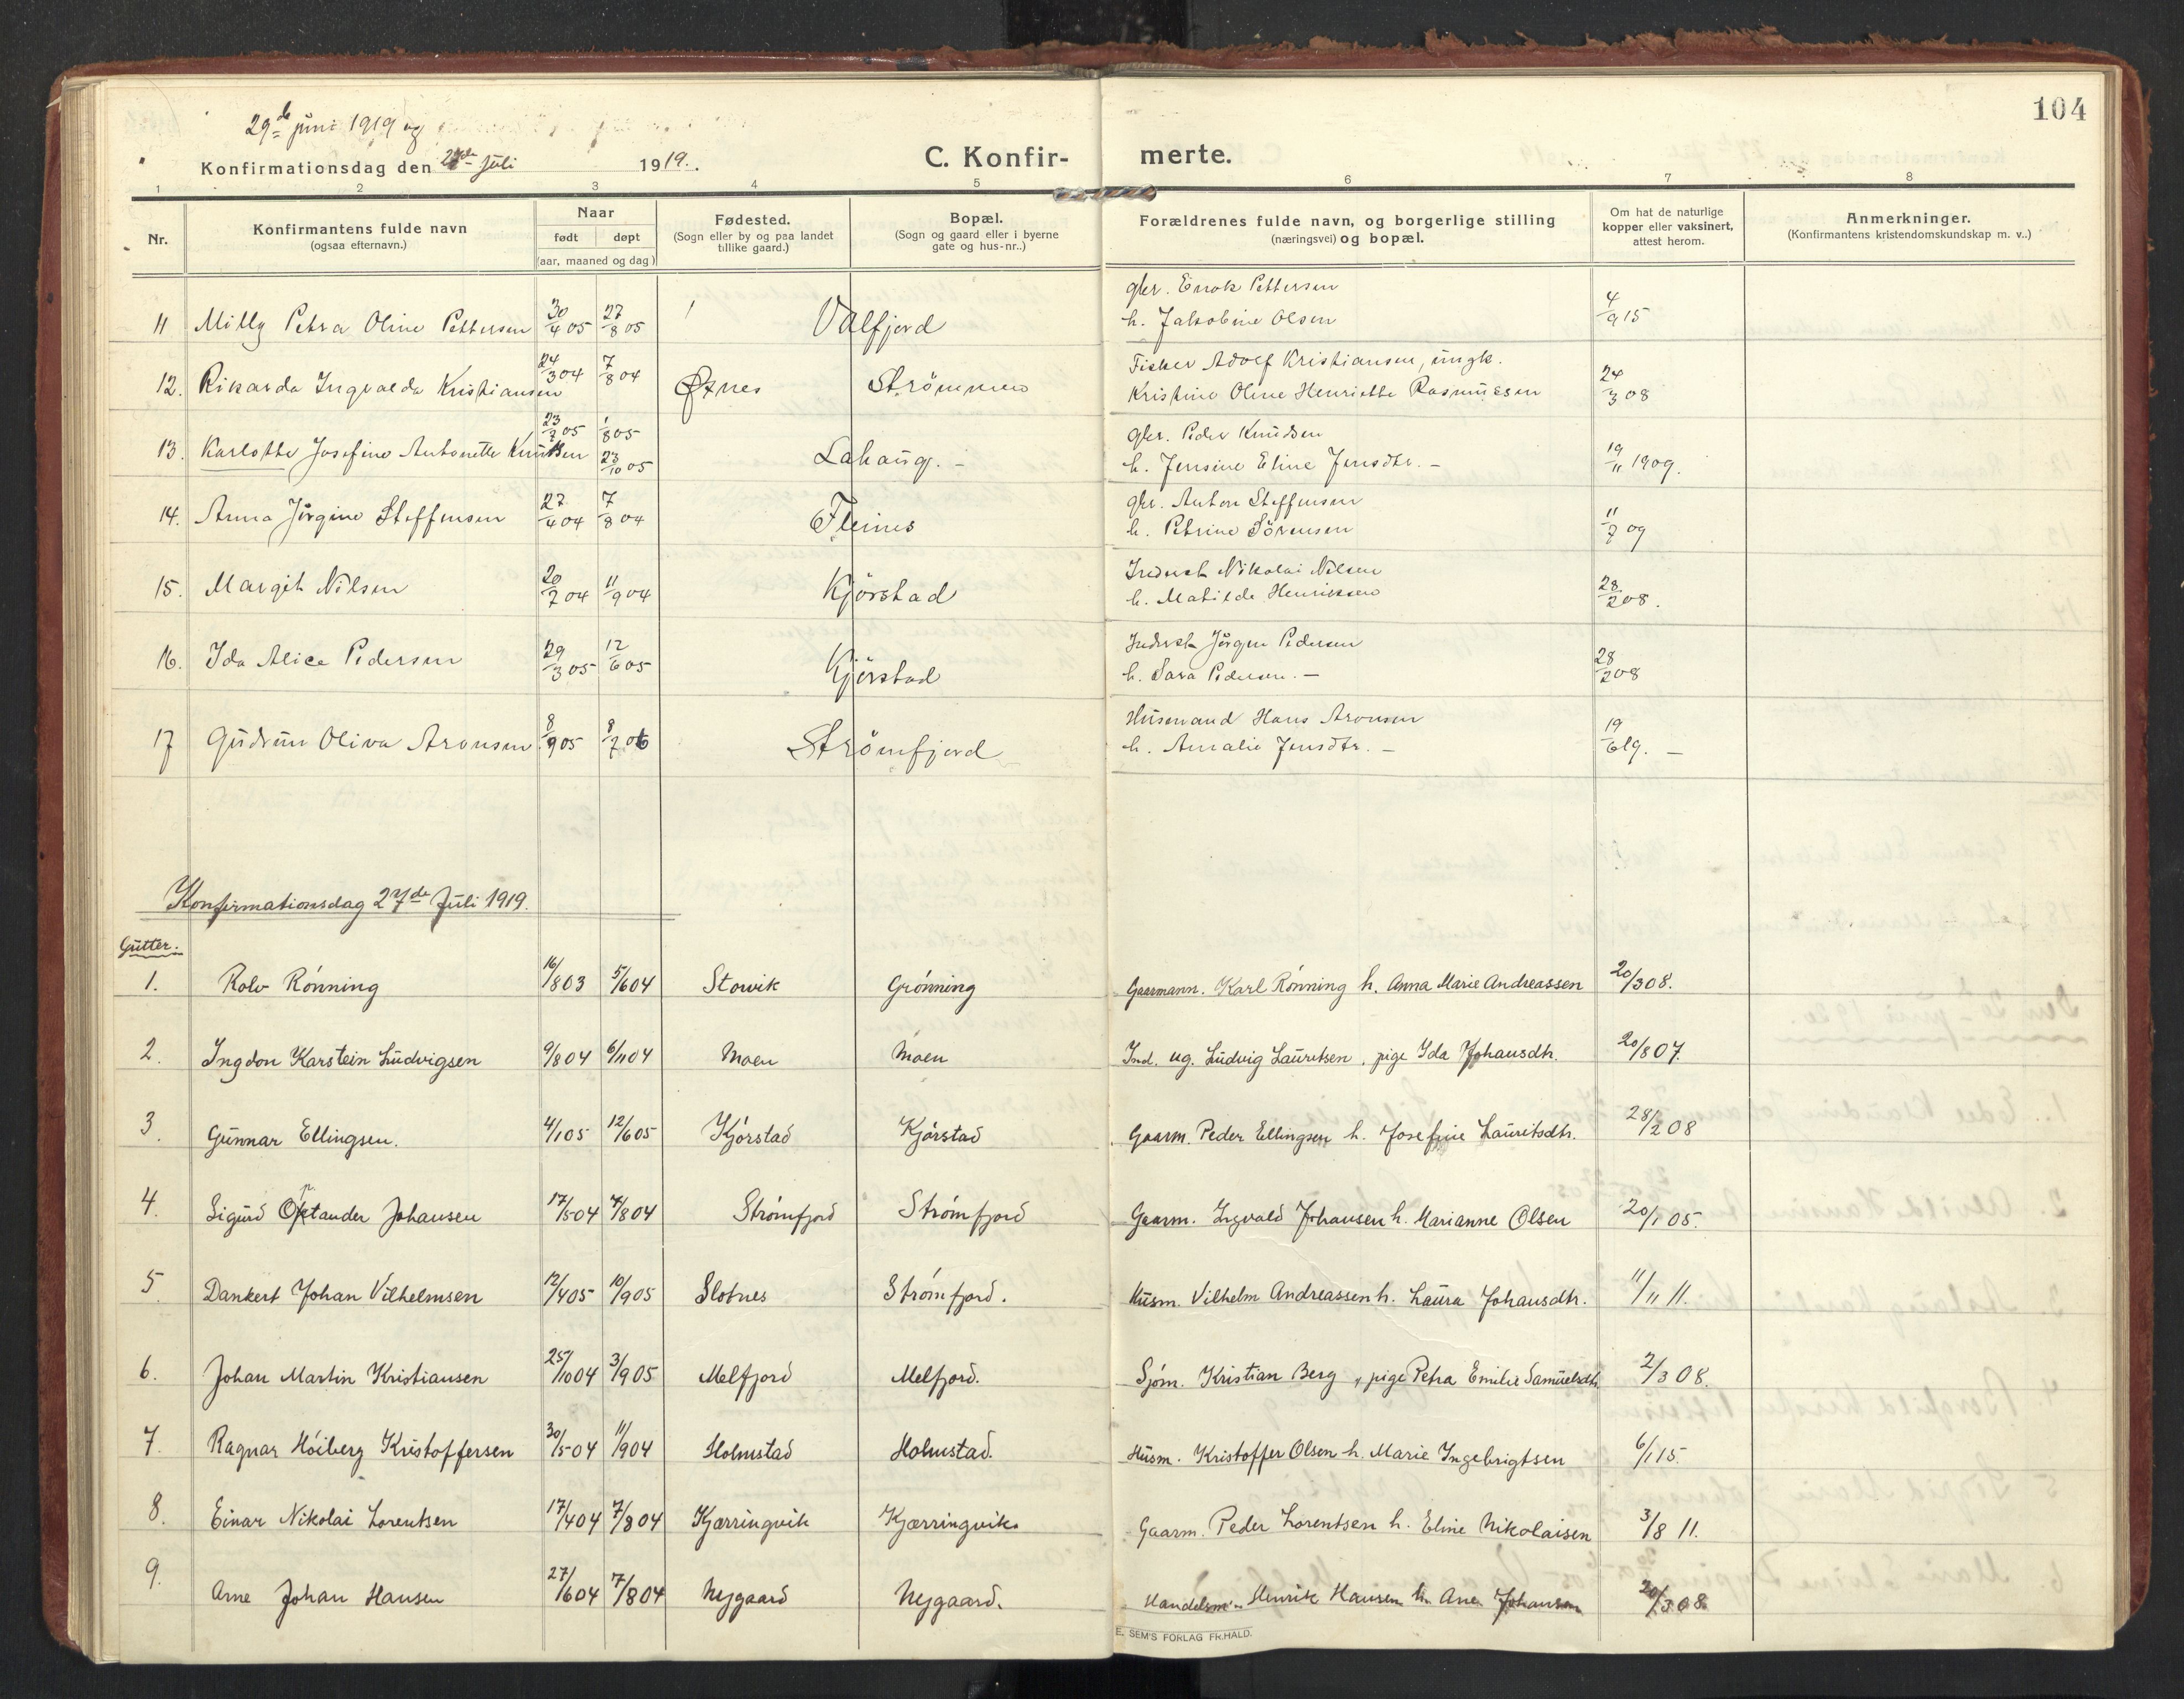 104
29de juni 1919 og
Konfirmationsdag den 27de Juli 1919.
C. Konfir- merte.
1 2 3 4 5 6 7 8
Nr.
Konfirmantens fulde navn
(ogsaa efternavn.)
Naar
født døpt
(aar, maaned og dag)
Fødested.
(Sogn eller by og paa landet
tillike gaard.)
Bopæl.
(Sogn og gaard eller i byerne
gate og hus-nr..)
Forældrenes fulde navn, og borgerlige stilling
(næringsvei) og bopæl.
Om hat de naturlige
kopper eller vaksinert,
attest herom.
Anmerkninger.
(Konfirmantens kristendomskundskap m. v..)
gbr. Enok Pettersen
11 Milly Petra Oline Pettersen 30/4 05 27/8 05 Valfjord h. Jakobine Olsen 4/9 15
Fisker Adolf Kristiansen, ungk.
12. Rikarda Ingvalda Kristiansen 24/3 04 7/8 04 Øxnes Strömmen Kristine Oline Henriette Rasmussen 24/3 08
23/7 05 1/8 05 gbr. Peder Knudsen
13. Karlotte Josefine Antonette Knutsen 23/10 05 Lahaug. - h. Jensine Eline Jensdtr. - 19/11 1909.
gbr. Anton Steffensen
14. Anna Jörgine Steffensen 27/4 04 7/8 04 Fleines h. Petrine Sörensen 11/7 09
Inderst Nikolai Nilsen
15. Margit Nilsen 20/7 04 11/9 04 Kjörstad h. Matilde Henriksen 28/2 08.
Inderst Jörgen Pedersen
16. Ida Alice Pedersen 29/3 05 12/6 05 Kjörstad h. Sara Pedersen. - 28/2 08
Husmand Hans Aronsen
17 Gudrun Oliva Aronsen 8/9 05 8/7 06 Strömfjord h. Amalie Jensdtr. - 19/6 19. -
Konfirmationsdag 27de Juli 1919.
Gutter.
1. Rolv Rónning 16/8 03 5/6 04 Stovik Grónning Gaarmann. Karl Rónning h. Anna Marie Andreassen 20/3 08.
2. Ingdon Karstein Ludvigsen 9/8 04 6/11 04 Moen Moen Ind. ug. Ludvig Lauritsen, pige Ida Johansdtr. 20/8 07.
3. Gunnar Ellingsen. 4/1 05 12/6 05 Kjórstad Kjórstad Gaarm. Peder Ellingsen h. Josefine Lauritsdtr. 28/2 08
4. Sigurd Optander Johansen 17/5 04 7/8 04 Strómfjord Strómfjord Gaarm. Ingvald Johansen h. Marianne Olsen 20/1 05.
5. Dankert Johan Vilhelmsen 12/4 05 10/9 05 Slotnes Strómfjord. Husm. Vilhelm Andreassen h. Laura Johansdtr. 11/11 11.
6. Johan Martin Kristiansen 25/10 04 3/9 05 Melfjord Melfjord. Sjóm. Kristian Berg, pige Petra Emilie Samuelsdtr. 2/3 08.
7. Ragnar Hóiberg Kristoffersen 30/5 04 11/9 04 Holmstad Holmstad. Husm. Kristoffer Olsen h. Marie Ingebrigtsen 6/1 15.
8. Einar Nikolai Lorentsen 17/4 04 7/8 04 Kjærringvik Kjærringvik. Gaarm. Peder Lorentsen h. Eline Nikolaisen 3/8 11.
9. Arne Johan Hansen 27/6 04 7/8 04 Nygaard Nygaard. Handelsm. Henrik Hansen h. Ane Johansen 20/3 08.
E. SEM'S FORLAG FR.HALD.